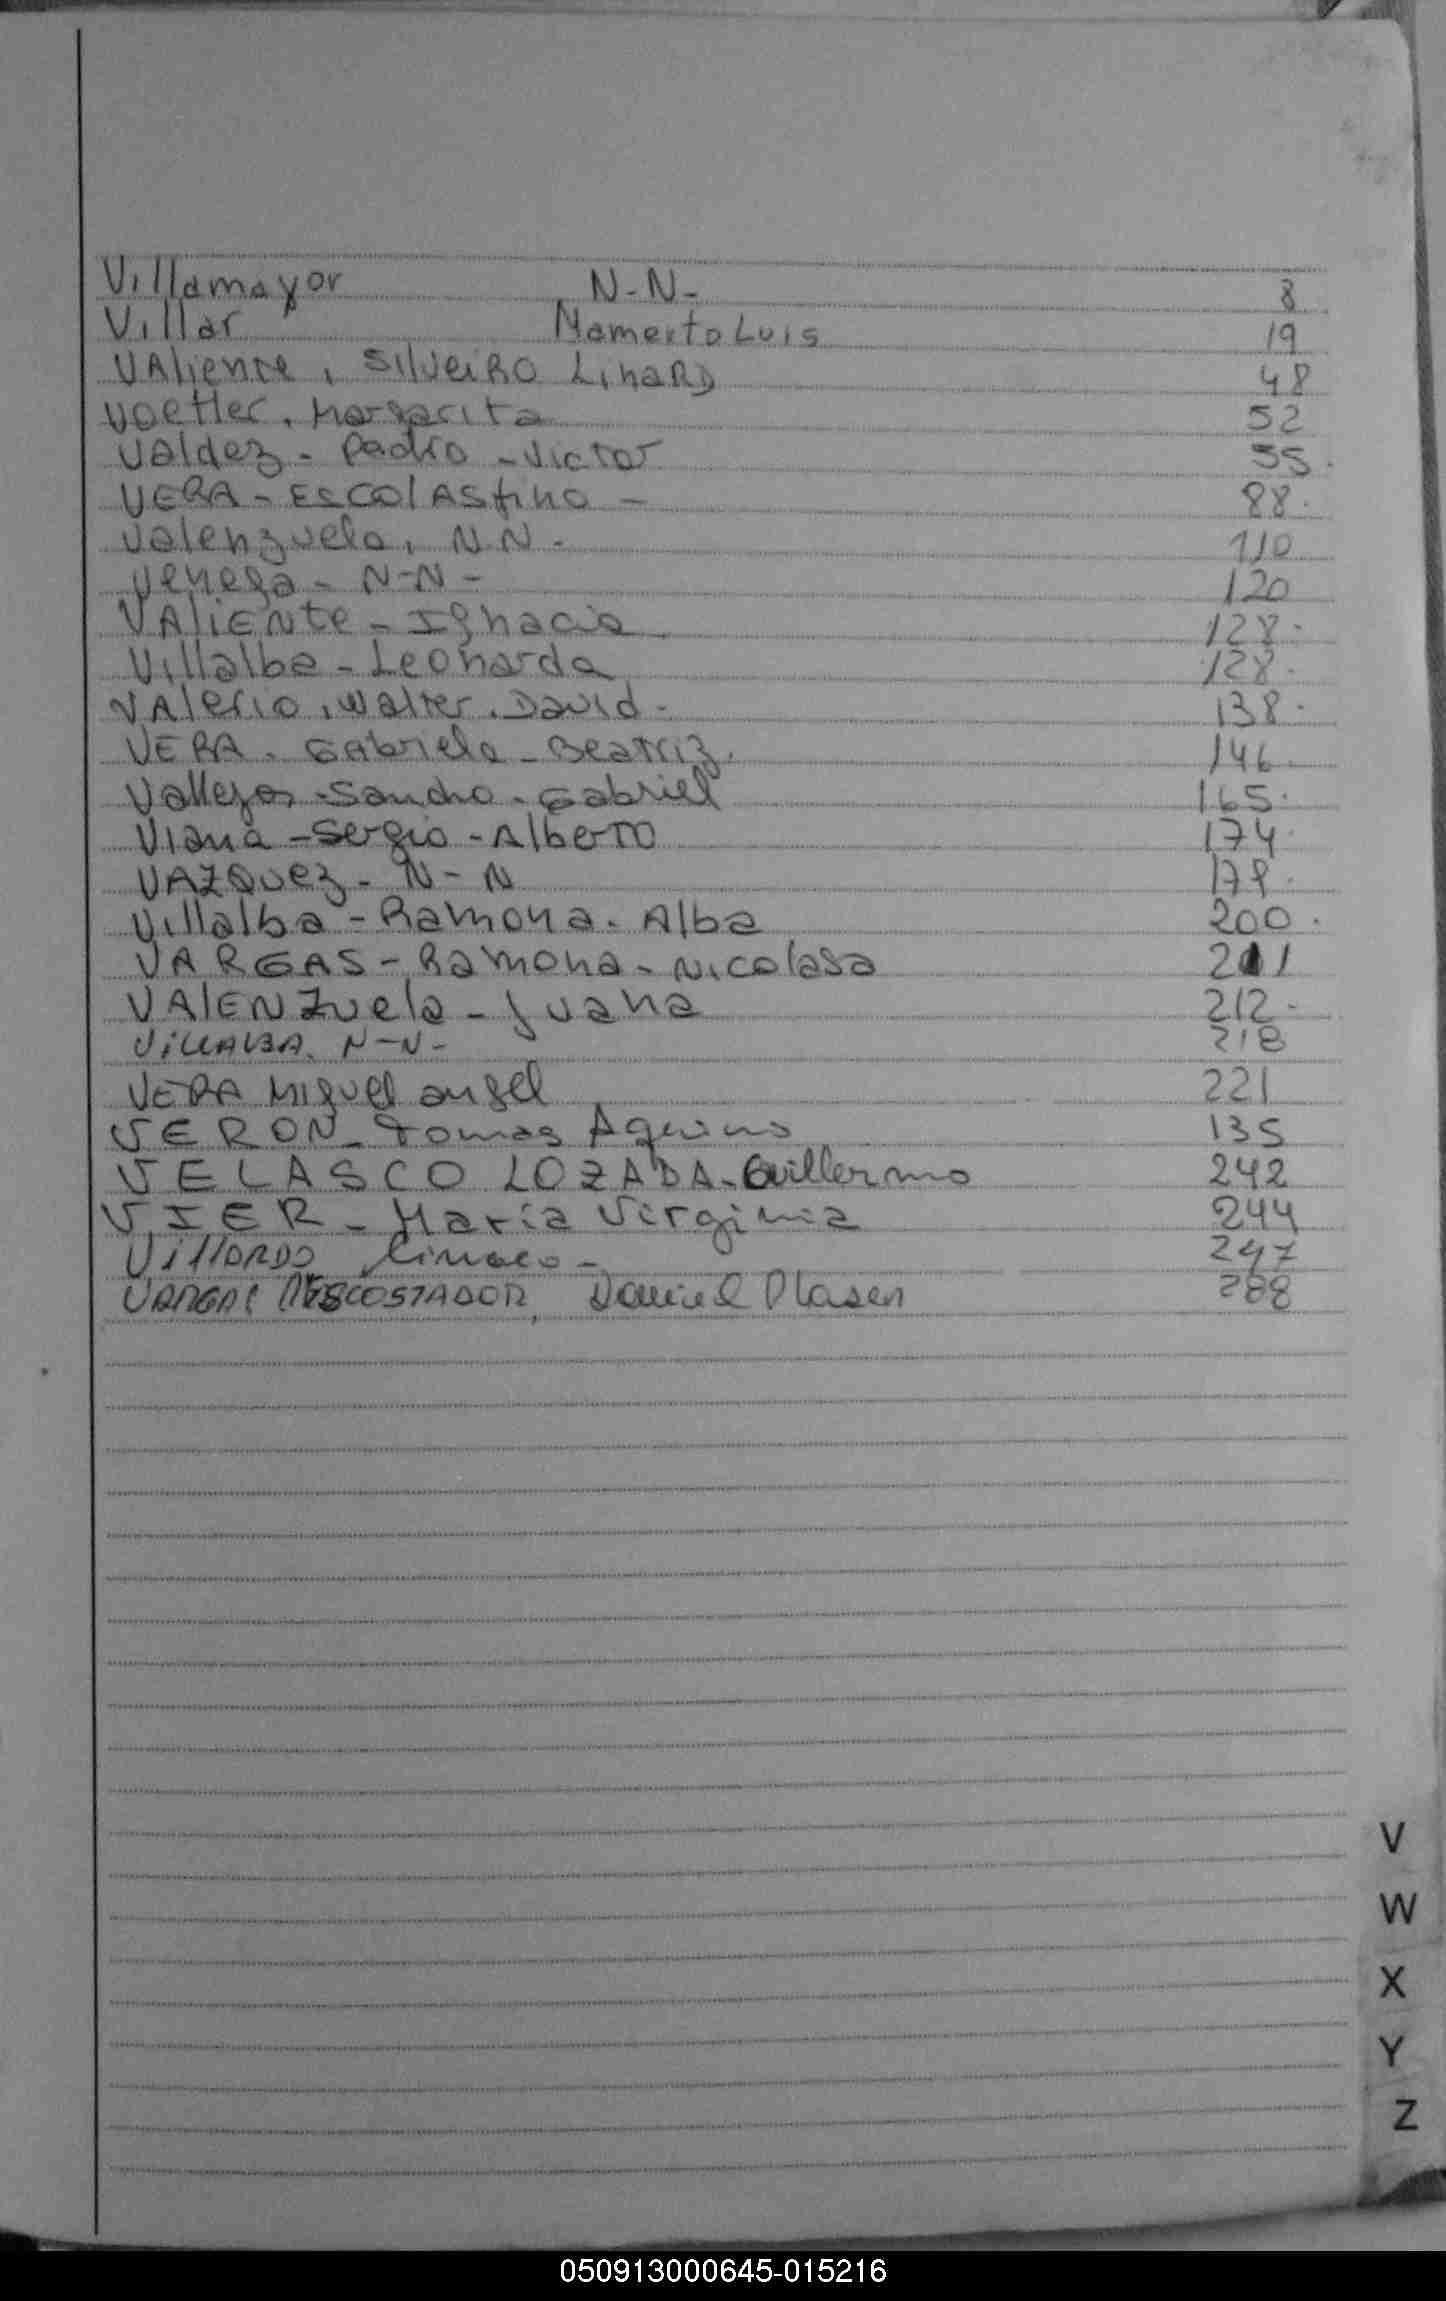 Villamayor N-N- 8
Villar Mamerto Luis 19
VAliente, SilVeiRO LinaRD 48
Voetter. Margarita 52
Valdez - Pedro - Victor 55.
VERA - EScolAstino - 88.
Valenzuela, N.N. - 110
Venega - N-N- 120
VAliENte - Ignacia 128.
Villalba - Leonarda 128.
VAlerio, Walter. David. 138.
VERA. GAbriela - Beatriz. 146.
Vallejos - Sancho - Gabriel 165.
Viana - Sergio - Alberto 174.
VAZQuez - N-N 179.
Villalba - Ramona. Alba 200.
VARGAS - Ramona - Nicolasa 201
VAlENZuela - Juana 212.
ViLLALBA. N-N- 218
VERA Miguel angel 221
VERON - Tomas Aquino 135
VELASCO LOZADA - Guillermo 242
VIER - Maria Virginia 244
Villordo - 247
VARGAS Daniel 288
V
W
X
Y
Z
050913000645-015216